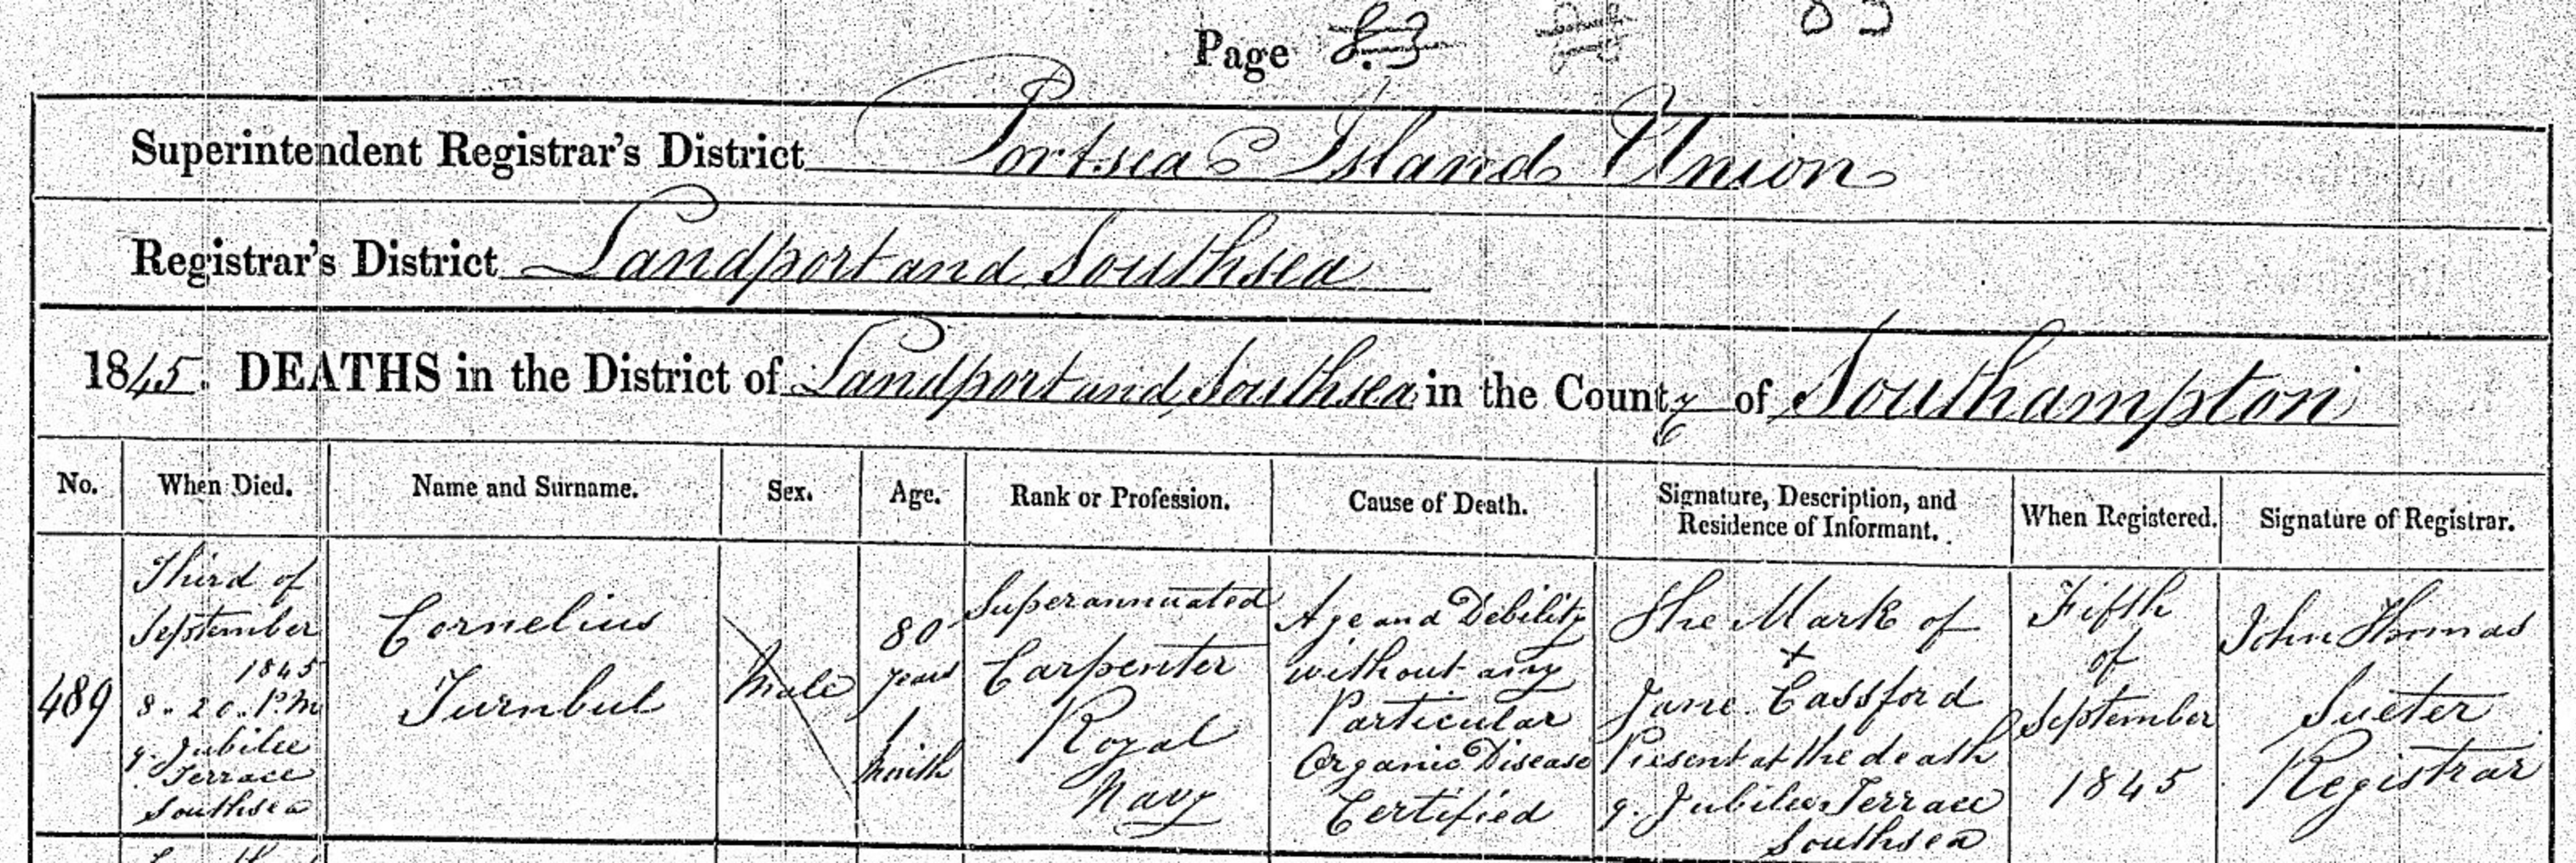 Page 83 83
Superintendent Registrar's District Portsea Island Union
Registrar's District Landport and Southsea
1845. DEATHS in the District of Landport and Southsea in the County of Southampton
No.
When Died.
Name and Surname.
Sex.
Age.
Rank or Profession.
Cause of Death.
Signature, Description, and
Residence of Informant.
When Registered.
Signature of Registrar.
489
Third of
September
1845
8.20.P.M
9. Jubilee
Terrace
Southsea
Cornelius
Turnbul
Male
80
years
1
month
Superannuated
Carpenter
Royal
Navy
Age and Debility
without any
Particular
Organic Disease
Certified
The Mark of
+
Jane Cassford
Present at the death
9. Jubilee Terrace
Southsea
Fifth
of
September
1845
John Thomas
Sueter
Registrar